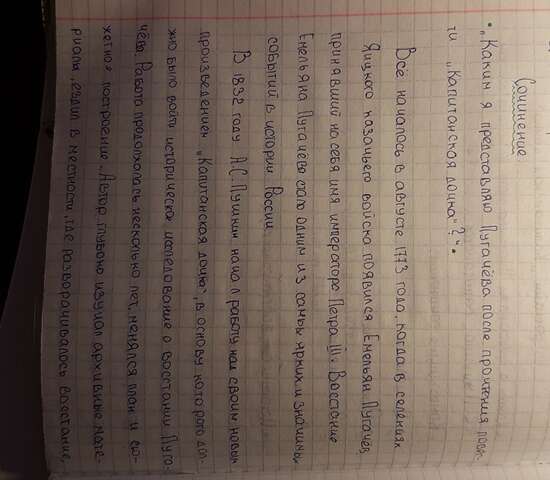 Сочинение
• „Каким я представляю Пугачёва после прочтения повес-
ти „Капитанская дочка"?".•
Всё началось в августе 1773 года, когда в селениях
Яицкого казачьего войска появился Емельян Пугачёв,
принявший на себя имя императора Петра III. Восстание
Емельяна Пугачёва стало одним из самых ярких и значимых
событий в истории России.
В 1832 году А.С. Пушкин начал работу над своим новым
произведением „Капитанская дочка", в основу которого дол-
жно было войти историческое исследование о восстании Пуга-
чёва. Работа продолжалась несколько лет, менялся план и сю-
жетное построение. Автор глубоко изучал архивные мате-
риалы, ездил в местности, где разворачивалось восстание,